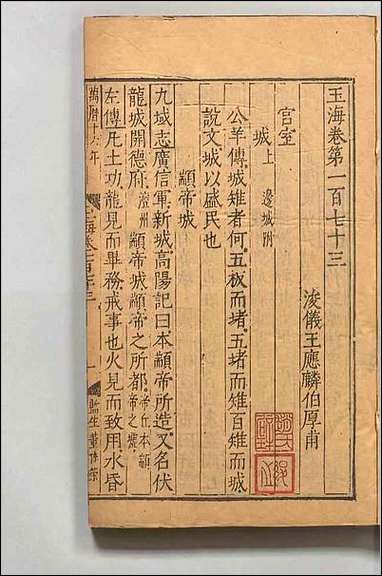 玉海卷第一百七十三
浚儀王應麟伯厚甫
宮室
城上 邊城附
公羊傳城雉者何五板而堵五堵而雉百雉而城
說文城以盛民也
顓帝城
九域志廣信軍新城高陽記曰本顓帝所造又名伏
龍城開德府 澶州 顓帝城顓帝之所都 帝丘本顓帝之墟
左傳凡土功龍見而畢務戒事也火見而致用水昏
萬曆十六年
玉海卷一百七十三
一
監生